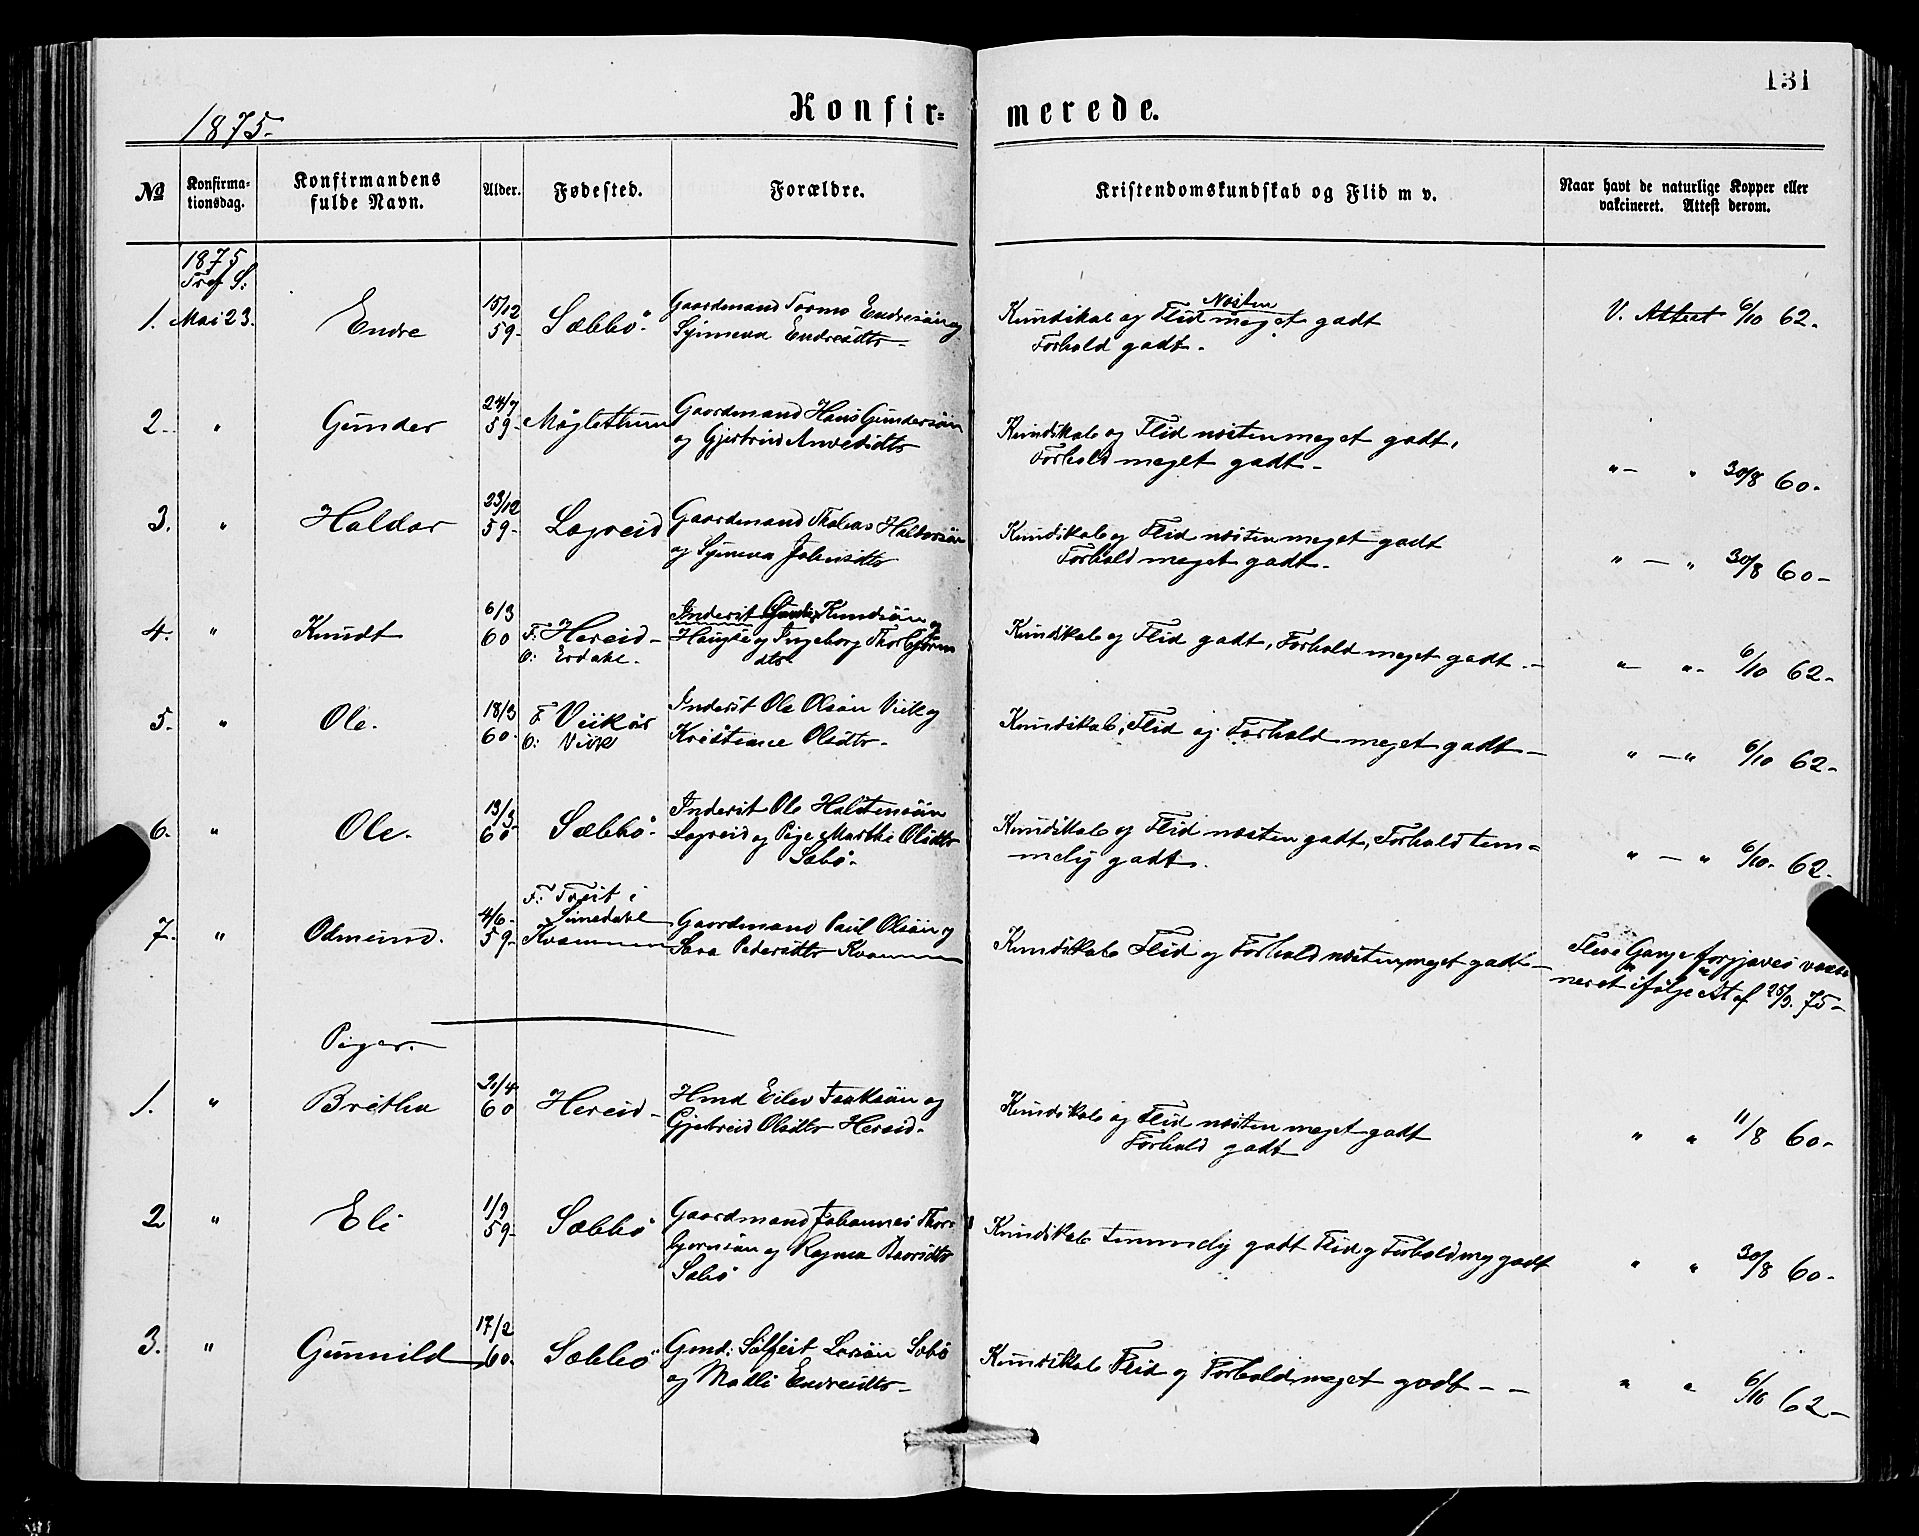 131
1875-
Konfir= merede.
No Konfirma-tionsdag. Konfirmandens fulde Navn. Alder. Fødested. Forældre. Kristendomskundskab og Flid m v. Naar havt de naturlige Kopper eller vakcineret. Attest derom.
1875
Tref S:
1. Mai 23. Endre 15/12 59- Sæbbö. Gaardmand Tormo Endresön og
Synneva Endresdtr-
Kundskab og Flid Næsten meget godt
Forhold godt-
V. Attest 6/10 62-
2- " Gunder 24/7 59- Måglethun Gaardmand Hans Gundersön
og Gjertrud
Kundskab og Flid næsten meget godt,
Forhold meget godt-
"- " 30/8 60-
3. " Haldor 23/12 59- Legreid Gaardmand Thobias Haldorsön
og Synneva Johansdtr
Kundskab og Flid næsten meget godt
Forhold meget godt-
" - " 30/8 60-
4. " Knudt 6/3 60 F. Hereid-
O: Erdahl. Inderst Knudsön og
Haugse og Ingeborg Thorbjörns
dtr
Kundskab og Flid godt, Forhold meget godt.-
"- "- 6/10 62-
5. " Ole. 18/3 60- F. Viikör
O: Viik Inderst Ole Olsön Viik og
Kristiane Olsdtr-
Kundskab, Flid og Forhold meget godt-
" -" 6/10 62-
6. " Ole. 13/3 60 Sæbbö- Inderst Ole Halstensön
Legreid og Pige Martha Olsdtr
Sæbö-
Kundskab og Flid næsten godt, Forhold tem=
melig godt.
" - " 6/10- 62-
7- " Odmund. 4/6- 59- F: Treit i
Simedahl
Kvammen Gaardmand Paul Olsön og
Sara Pedersdtr Kvammen
Kundskab Flid og Forhold næsten meget godt-
Flere Gange forgjæves vacci
neret ifölge At af 25/9. 75-
Piger.
1. " Britha 21/4 60 Hereid- Hmd Eilev og
Gjertrud Olsdtr Hereid-
Kundskab og Flid næsten meget godt
Forhold godt
" " 11/8 60-
2 " Eli 1/9 59- Sæbbö Gaardmand Johannes Thor=
björnsön og Ragna
Sæbö
Kundskab temmelig godt Flid og Forhold meg godt
" " 30/8 60-
3. " Gunnild 17/2 60- Sæbbö Gmd: Sölfest Larsön Sæbö
og Madli Endresdtr-
Kundskab Flid og Forhold meget godt - -
" " 6/10 62-